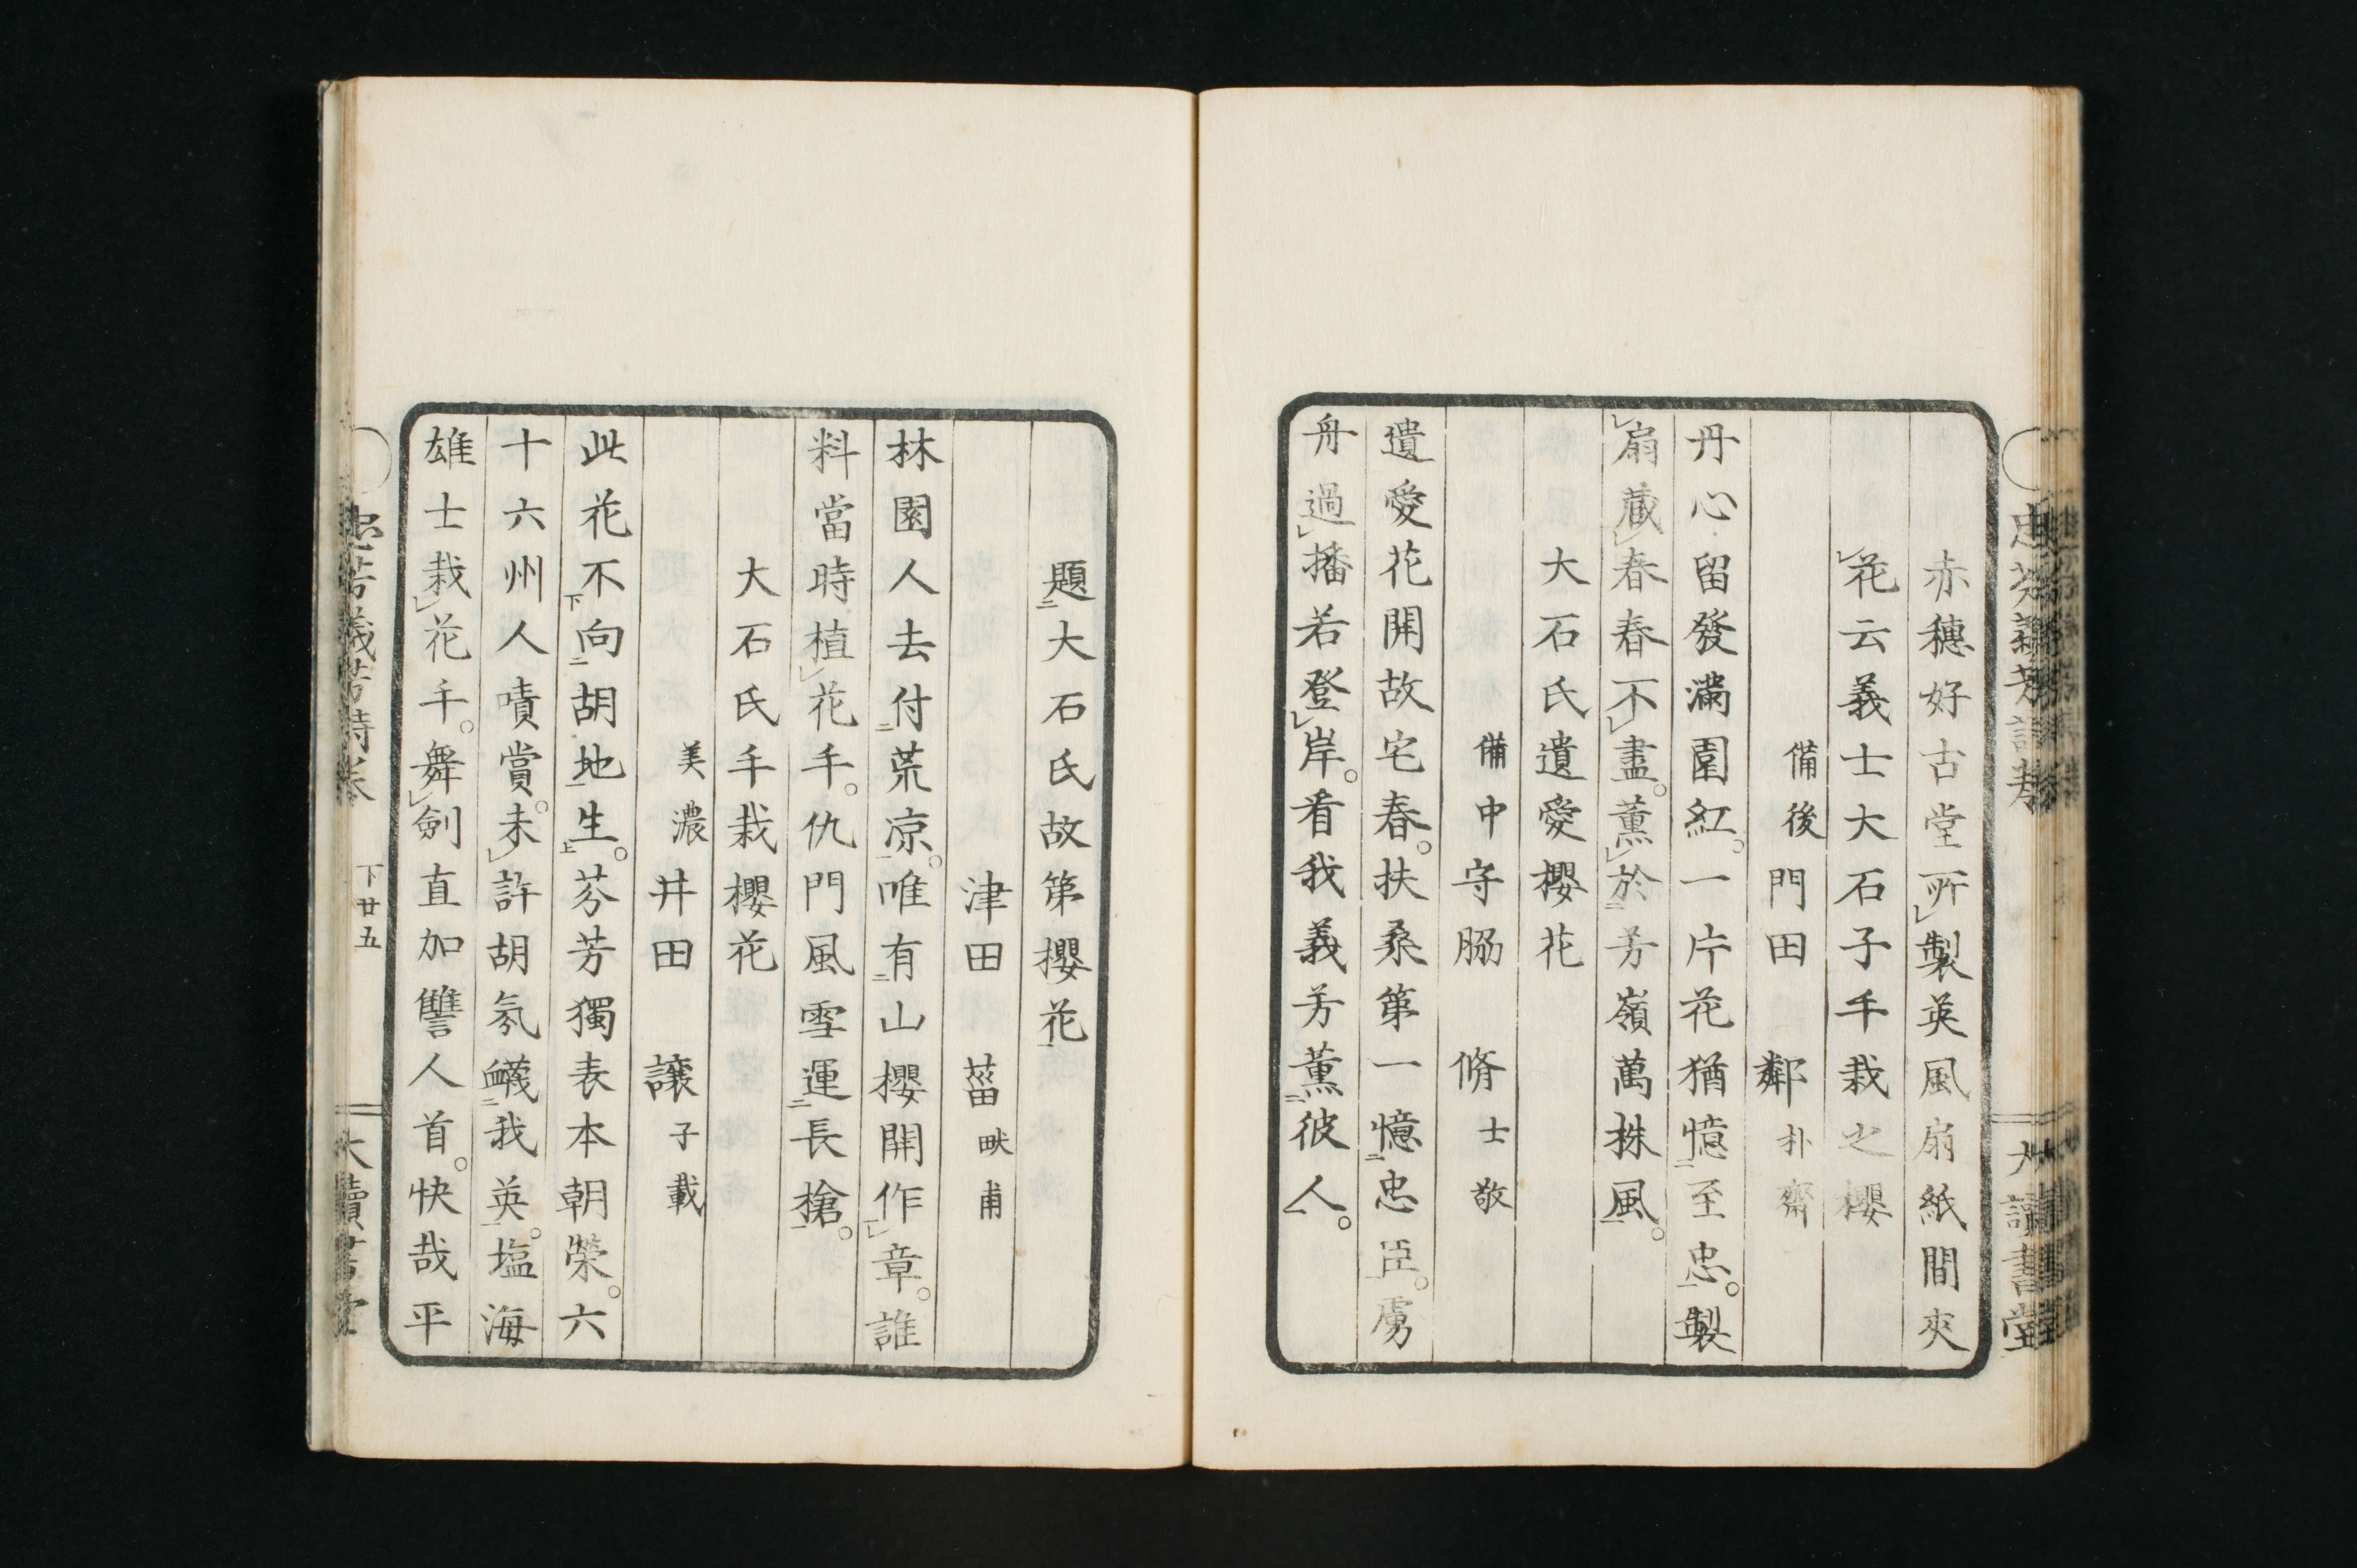 赤穗好古堂所製英風扇紙間夾
花云義士大石子手栽之櫻
備後 門田 鄰 朴齋
丹心留發滿園紅。一片花猶憶至忠。製
扇藏春春不盡。薰於芳嶺萬株風。
大石氏遺愛櫻花
備中 守 脇 脩 士敬
遺愛花開故宅春。扶桑第一憶忠臣。虜
舟過播若登岸。看我義芳薰彼人。
題大石氏故第櫻花
津田 菑 畎甫
林園人去付荒凉。唯有山櫻開作章。誰
料當時植花手。仇門風雪運長槍。
大石氏手栽櫻花
美濃 井田 讓 子載
此花不向胡地生。芬芳獨表本朝榮。六
十六州人嘖賞。未許胡氛衊我英。塩海
雄士栽花手。舞劍直加讐人首。快哉平
忠芳義芳詩卷 下廿五 大讀書堂